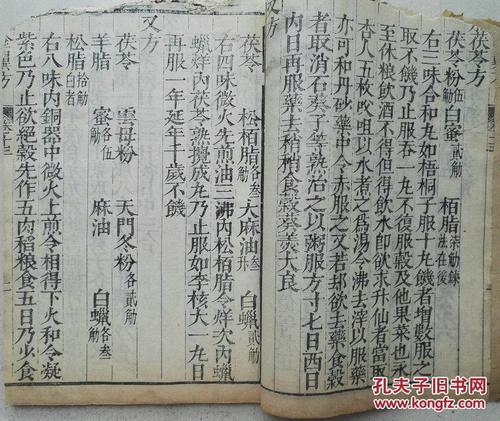 茯苓方
茯苓粉伍觔 白蜜貳觔 栢脂柒觔鍊法在後
右三味合和丸如梧桐子服十丸饑者增數服之
取不饑乃止服吞一丸不復服穀及他果菜也永
至休粮飲酒不得但得飲水即欲求升仙者當取
杏人五枚㕮咀以水煮之爲湯令沸去滓以服藥
亦可和丹砂藥中令赤服之又若却欲去藥食穀
者取消石葵子等熟治之以粥服方寸七日四日
內日再服藥去稍稍食穀葵羹大良
又方
茯苓 松栢脂各叁觔 大麻油叁升 白蠟貳觔
右四味微火先煎油三沸內松栢脂令烊次內蠟
蠟烊內茯苓熟攪成丸乃止服如李核大一丸日
再服一年延年千歲不饑
又方
茯苓 雲母粉 天門冬粉各貳觔
羊脂 蜜各伍觔 麻油 白蠟各叁觔
松脂拾觔白者
右八味內銅器中微火上煎令相得下火和令凝
紫色乃止欲絕穀先作五肉稻粮食五日乃少食
孔夫子旧书网
www.kongfz.com